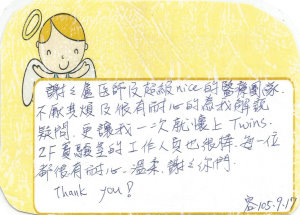 謝謝盧医師及超級nice的醫療團隊.
不厭其煩及很有耐心的為我解說
疑問. 更讓我一次就懷上Twins.
2F實驗室的工作人員也很棒. 每一位
都很有耐心. 溫柔. 謝謝你們.
Thank you!
105.9.17